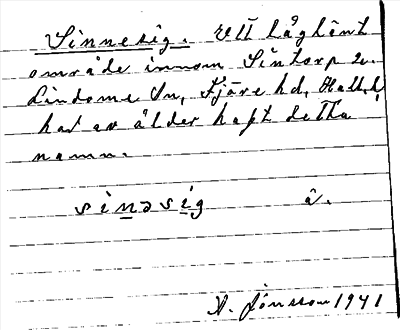 Sinnesig. Ett låglänt
område innom Sintorp 2.
Lindome Sn, Fjäre hd, Hall. l
har av ålder haft detta
namn.
sinəsig â.
A. Jönsson 1941